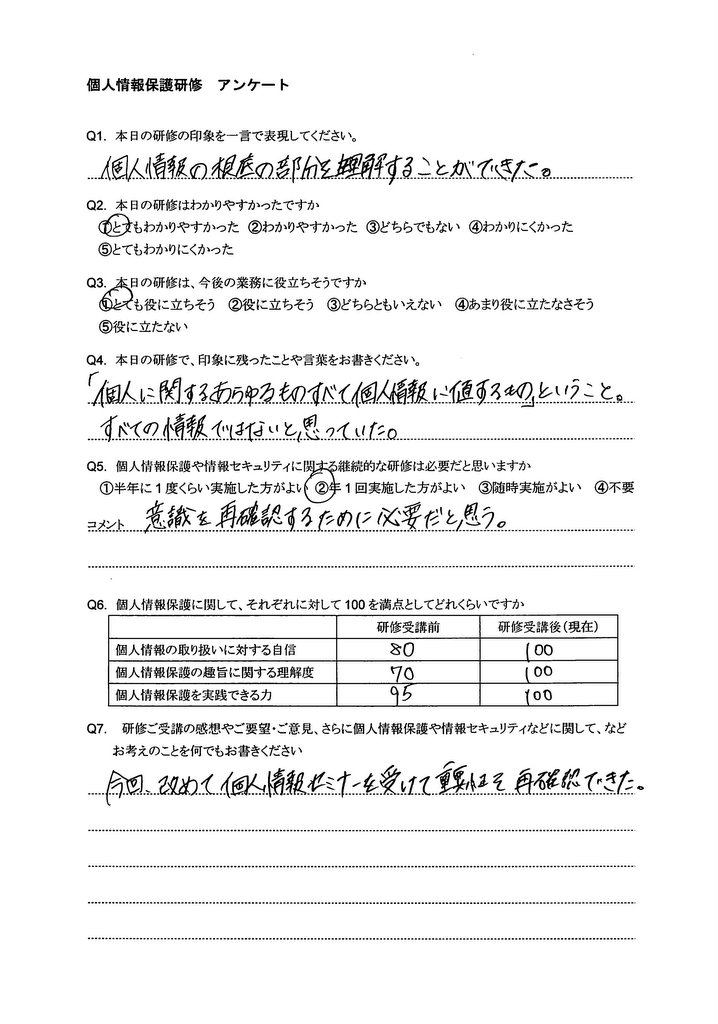 個人情報保護研修　アンケート
Q1. 本日の研修の印象を一言で表現してください。
個人情報の根底の部分を理解することができた。
Q2. 本日の研修はわかりやすかったですか
①とてもわかりやすかった ②わかりやすかった ③どちらでもない ④わかりにくかった
⑤とてもわかりにくかった
Q3. 本日の研修は、今後の業務に役立ちそうですか
①とても役に立ちそう ②役に立ちそう ③どちらともいえない ④あまり役に立たなさそう
⑤役に立たない
Q4. 本日の研修で、印象に残ったことや言葉をお書きください。
「個人に関するあらゆるものすべて個人情報に値するもの」ということ。
すべての情報ではないと思っていた。
Q5. 個人情報保護や情報セキュリティに関する継続的な研修は必要だと思いますか
①半年に1度くらい実施した方がよい ②年1回実施した方がよい ③随時実施がよい ④不要
コメント 意識を再確認するために必要だと思う。
Q6. 個人情報保護に関して、それぞれに対して100を満点としてどれくらいですか
研修受講前 研修受講後(現在)
個人情報の取り扱いに対する自信 80 100
個人情報保護の趣旨に関する理解度 70 100
個人情報保護を実践できる力 95 100
Q7. 研修ご受講の感想やご要望・ご意見、さらに個人情報保護や情報セキュリティなどに関して、など
お考えのことを何でもお書きください
今回、改めて個人情報セミナーを受けて重要性を再確認できた。